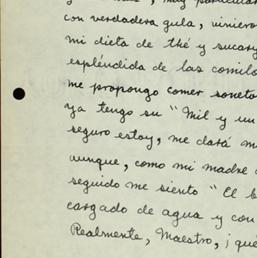 muy particular
con verdadera gula, viniero
mi dieta de thé y sucary
espléndida de las comilo
me propongo comer soneto
ya tengo su "Mil y un
seguro estoy, me dará m
aunque, como mi madre
seguido me siento "El b
cargado de agua y con
Realmente, Maestro, ¡qué